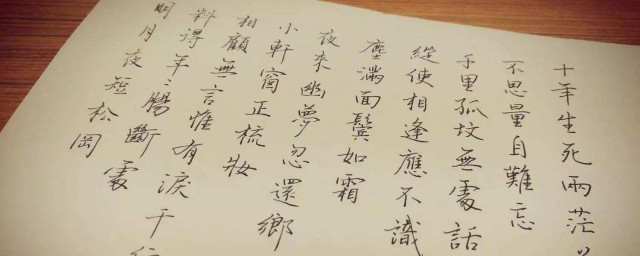 十年生死兩茫々
不思量自難忘
千里孤墳無處話
縱使相逢應不識
塵滿面鬢如霜
夜來幽夢忽還鄉
小軒窗正梳妝
相顧無言惟有淚千行
料得年々腸斷處
明月夜短松岡